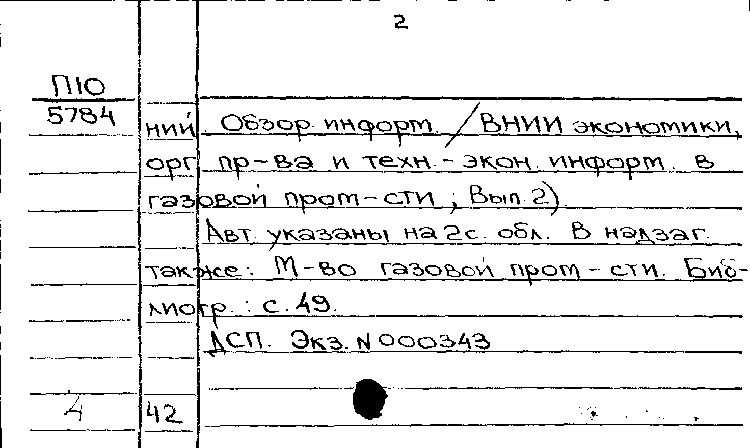 2
П10
5784
ний. Обзор. информ. / ВНИИ экономики,
орг. пр-ва и техн.-экон. информ. в
газовой пром-сти; Вып. 2)
Авт. указаны на 2 с. обл. В надзаг.
также: М-во газовой пром-сти. Биб-
лиогр.: с. 49.
ДСП. Экз. N 000343
4 42